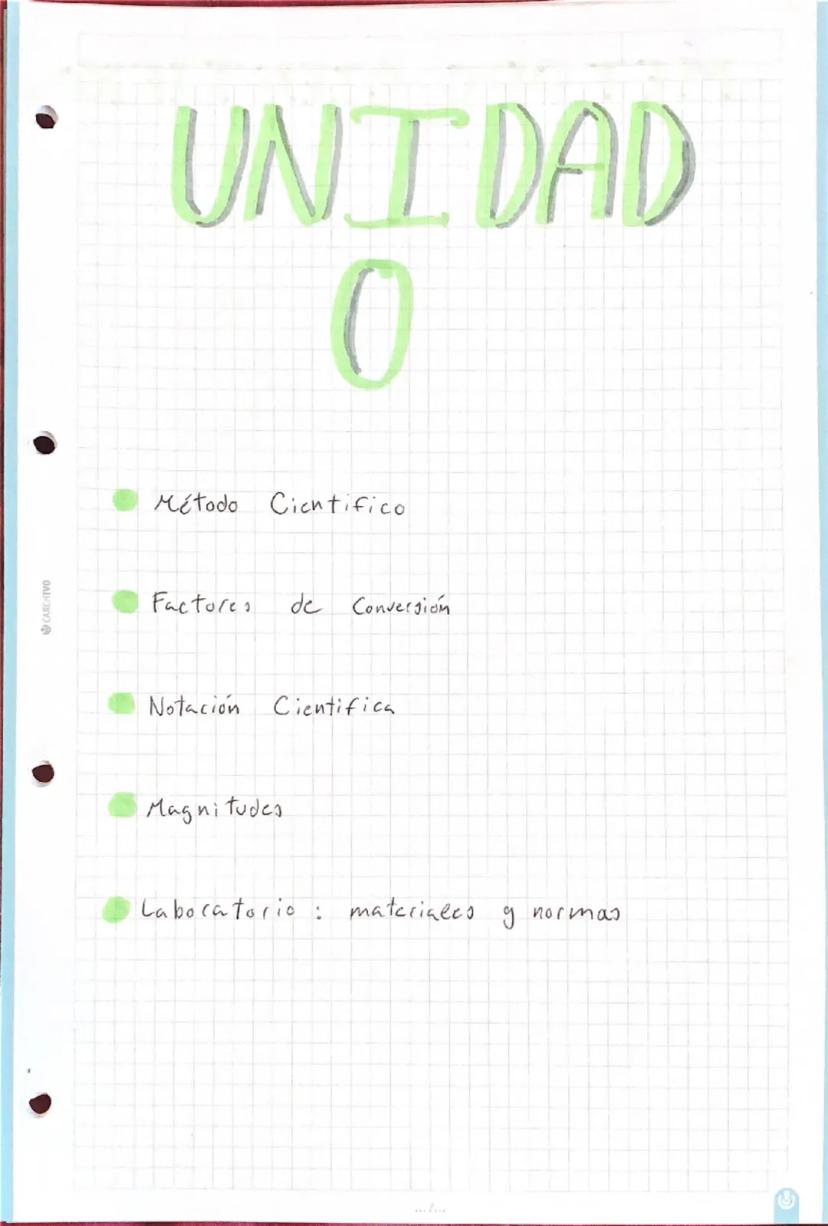 UNIDAD
0
Método Cientifico
Factores de Conversión
Notación Cientifica
Magnitudes
Laboratorio : materiales y normas
CARCHIVO